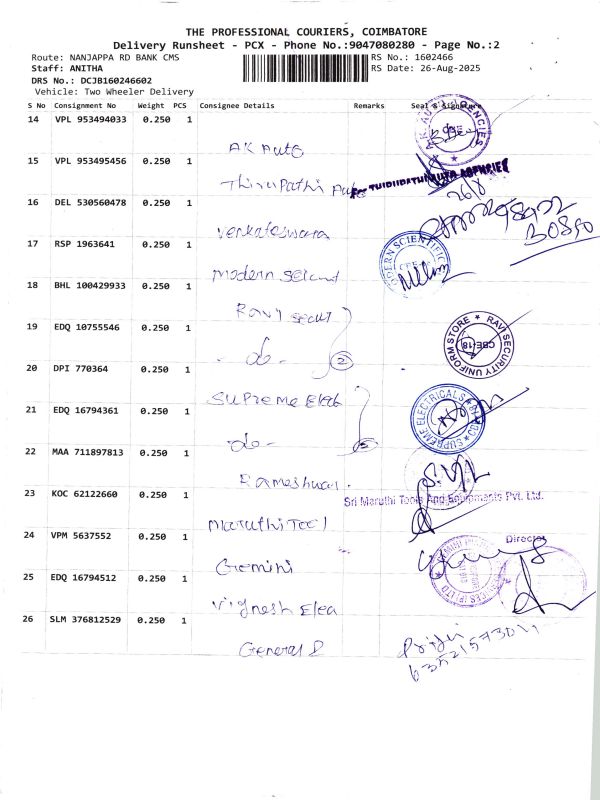 THE PROFESSIONAL COURIERS, COIMBATORE
Delivery Runsheet - PCX - Phone No.:9047080280 - Page No.:2
Route: NANJAPPA RD BANK CMS
RS No.: 1602466
Staff: ANITHA
RS Date: 26-Aug-2025
DRS No.: DCJB160246602
Vehicle: Two Wheeler Delivery
S No Consignment No Weight PCS Consignee Details Remarks Seal & Signature
14 VPL 953494033 0.250 1
AK Auto
15 VPL 953495456 0.250 1
Thirupathi Auto
For THIRUPATHI AUTO AGENCIES
26/8
16 DEL 530560478 0.250 1
Venkateswara
17 RSP 1963641 0.250 1
MODERN SCIENTIFIC
Modern Scient
18 BHL 100429933 0.250 1
Ravi Secut
19 EDQ 10755546 0.250 1
RAVI SECURITY UNIFORM STORE
CBE-18
-do- 2
20 DPI 770364 0.250 1
Supreme Elect
21 EDQ 16794361 0.250 1
SUPREME ELECTRICALS
-do-
22 MAA 711897813 0.250 1
Rameshwar.
23 KOC 62122660 0.250 1
Sri Maruthi Tools And Equipments Pvt. Ltd.
Maruthi Tool
24 VPM 5637552 0.250 1
Director
Gemini
25 EDQ 16794512 0.250 1
Vignesh Elea
26 SLM 376812529 0.250 1
General